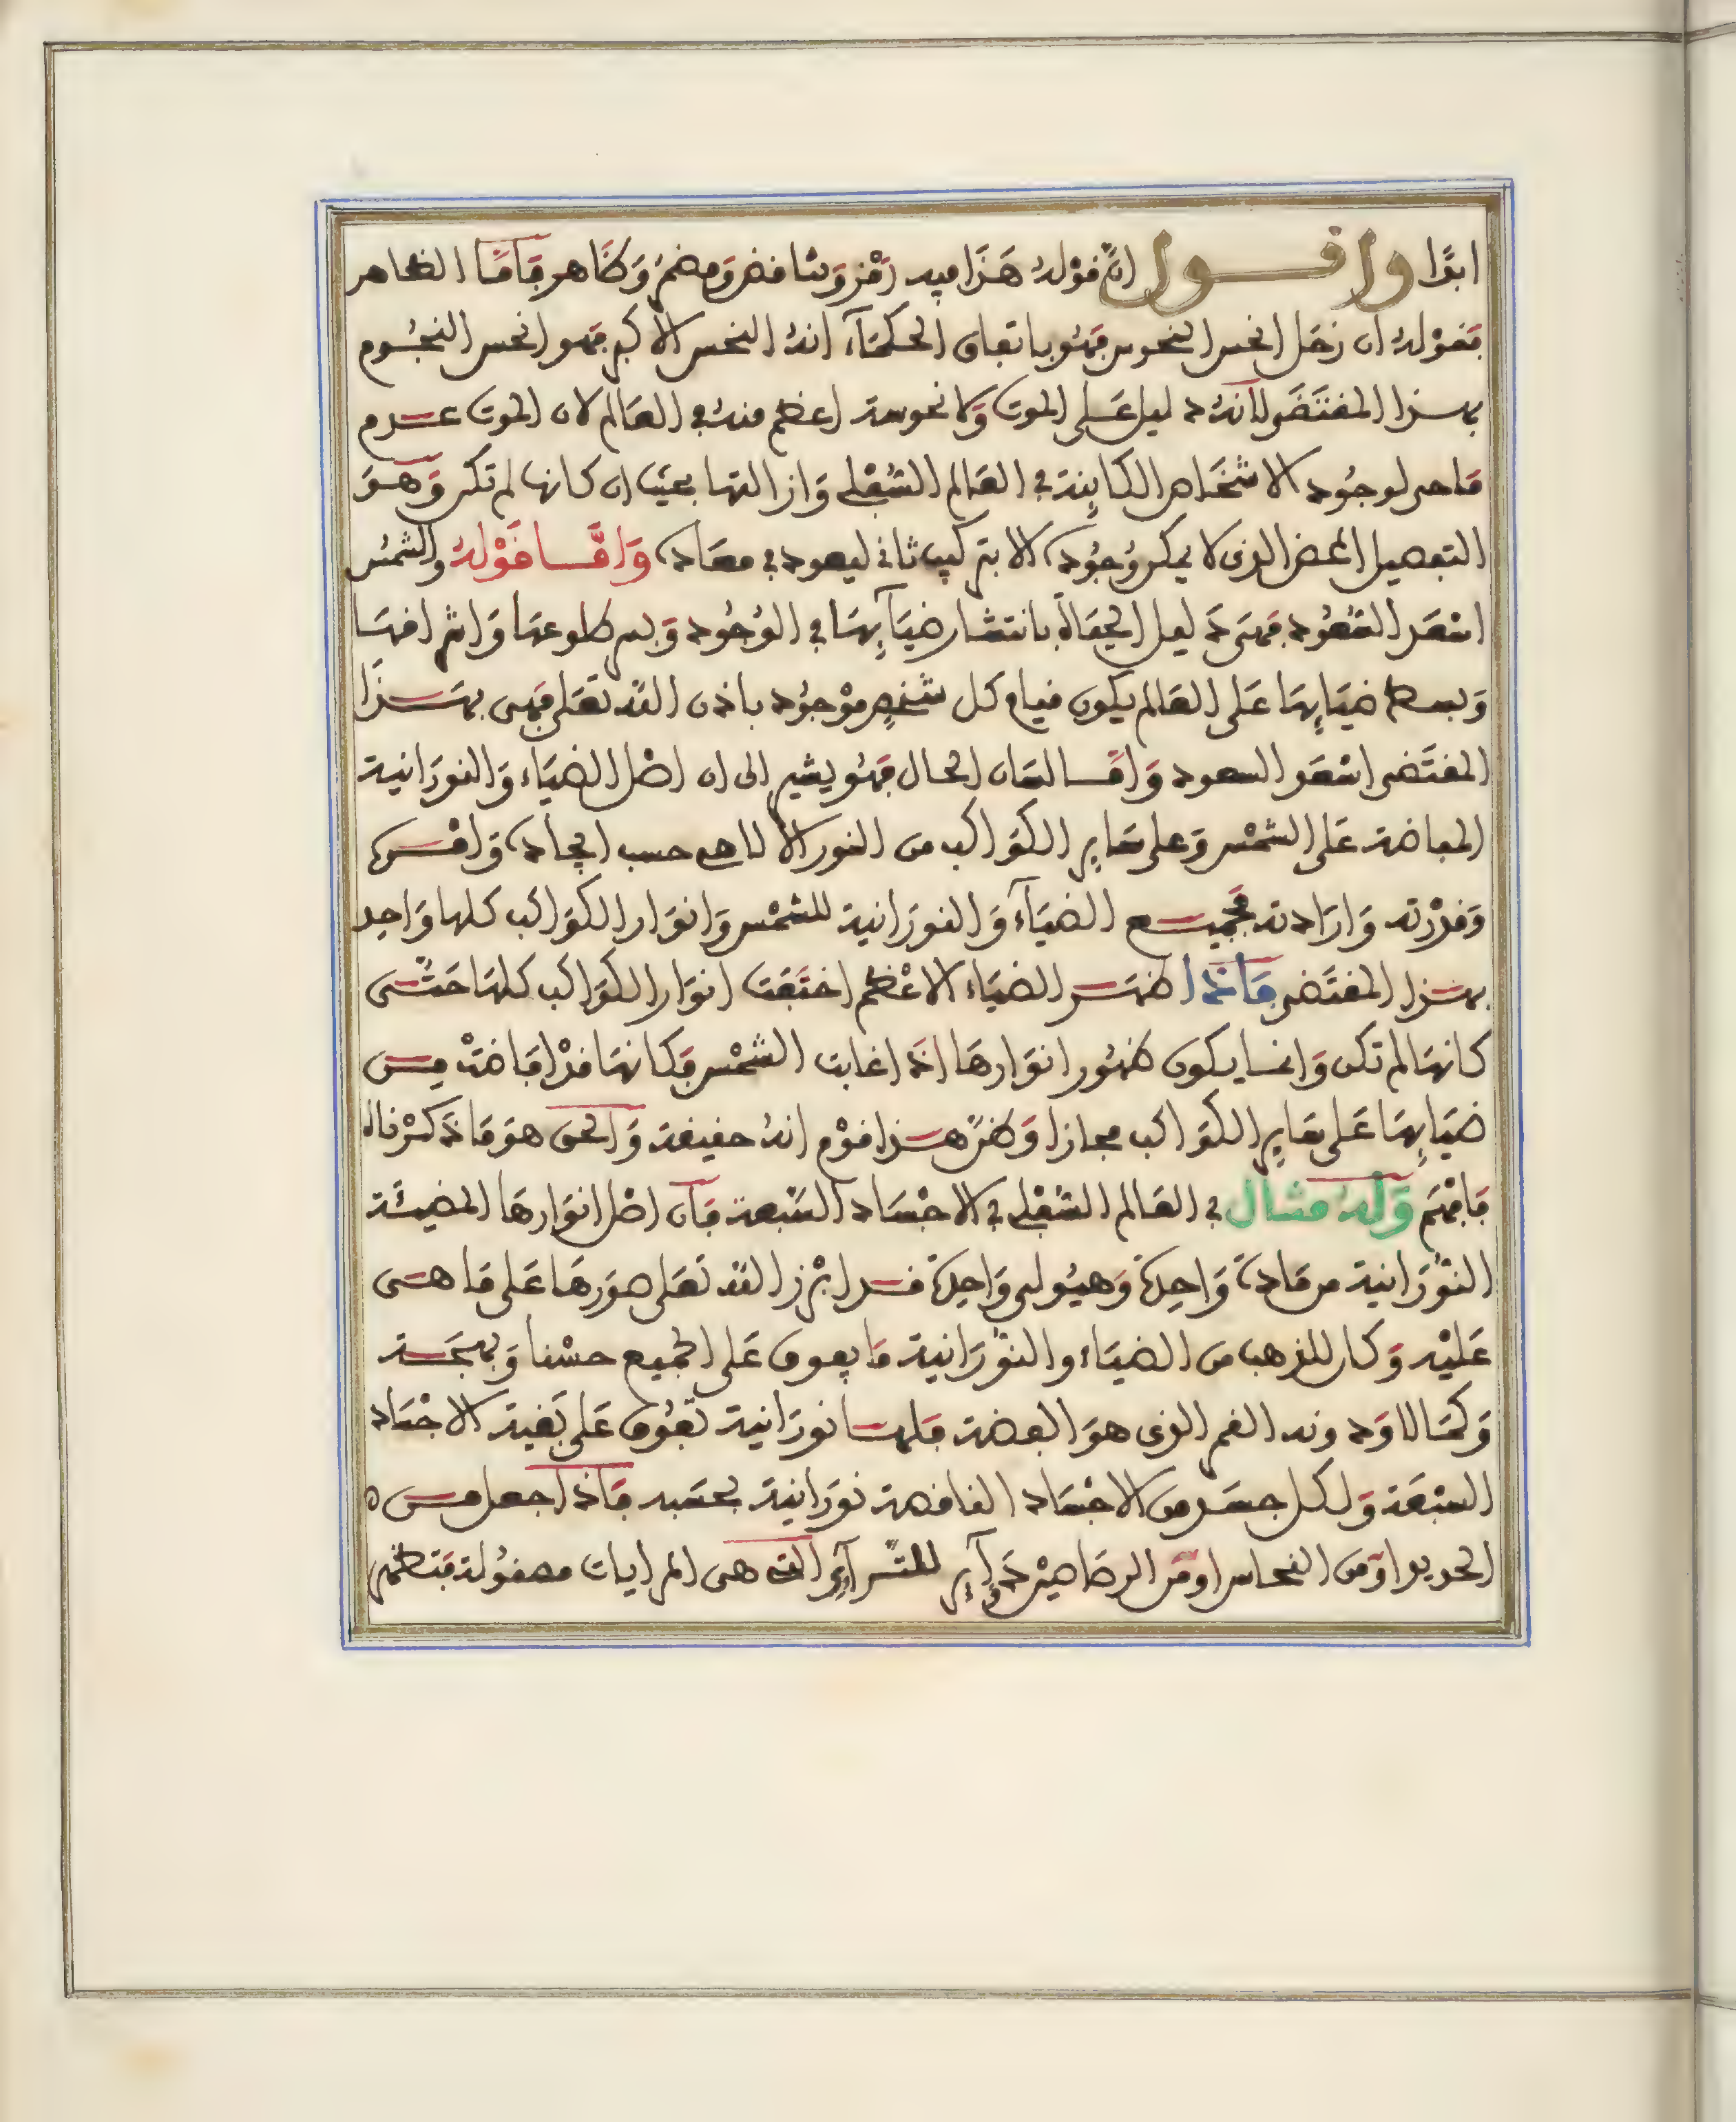 ابدا واقول ان قوله هذا فيه رمز وتناقض ومضمر وظاهر فاما الظاهر
فقوله ان زحل انحس النحوس فهو باتفاق الحكماء انه النحس الاكبر فهو انحس النجوم
بهذا المقتضى لانه دليل على الموت ولا نحوسة اعظم منه في العالم لان الموت عدم
ماحى لوجود الاشخاص الكاينة في العالم السفلي وازالتها بحيث ان كانها لم تكن وهو
التفصيل المحض الذي لا يمكن وجوده الا بتركيب ثاني ليعود في معاده واما قوله والشمس
اسعد السعود فهي دليل الحياة بانتشار ضيآيها في الوجود وبسر طلوعها واشراقها
وبسط ضيايها على العالم يكون قيام كل شخص موجود باذن الله تعلى فهي بهذا
المقتضى اسعد السعود واما لسان الحال فهو يشير الى ان اصل الضياء والنورانية
المفاضة على الشمس وعلى ساير الكواكب من النور الالاهي حسب ايجاده وامره
وقدرته وارادته فجميع الضيآء والنورانية للشمس وانوار الكواكب كلها واحد
بهذا المقتضى فاذا ظهر الضياء الاعظم اختفت انوار الكواكب كلها حتى
كانها لم تكن وانما يكون ظهور انوارها اذا غابت الشمس فكانها قد افاضت من
ضيايها على ساير الكواكب مجازا وظن هذا قوم انه حقيقة والحق هو ما ذكرناه
فافهم وله مثال في العالم السفلي في الاجساد السبعة فان اصل انوارها المضيئة
النورانية من مادة واحدة وهيولى واحدة قد ابرز الله تعلى صورها على ما هي
عليه وكان للذهب من الضياء والنورانية ما يفوق على الجميع حسنا وبهجة
وكمالا ودونه القمر الذي هو الفضة فلها نورانية تفوق على بقية الاجساد
السبعة ولكل جسد من الاجساد الناقصة نورانية بحسبه فاذا جعل من
الحديد او من النحاس او من الرصاصين دوآير للترآئي التي هي المرايات مصقولة فتظهر